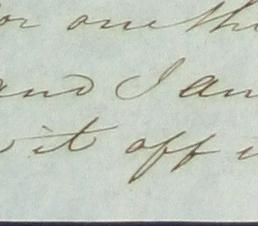 or one th
and I am
it off i